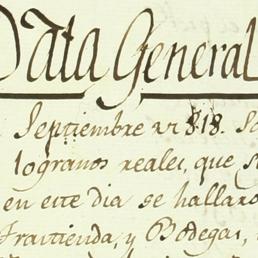 Data General
Septiembre
logranos reales, que
en este dia se hallaro
Trastienda, y Bodegas,